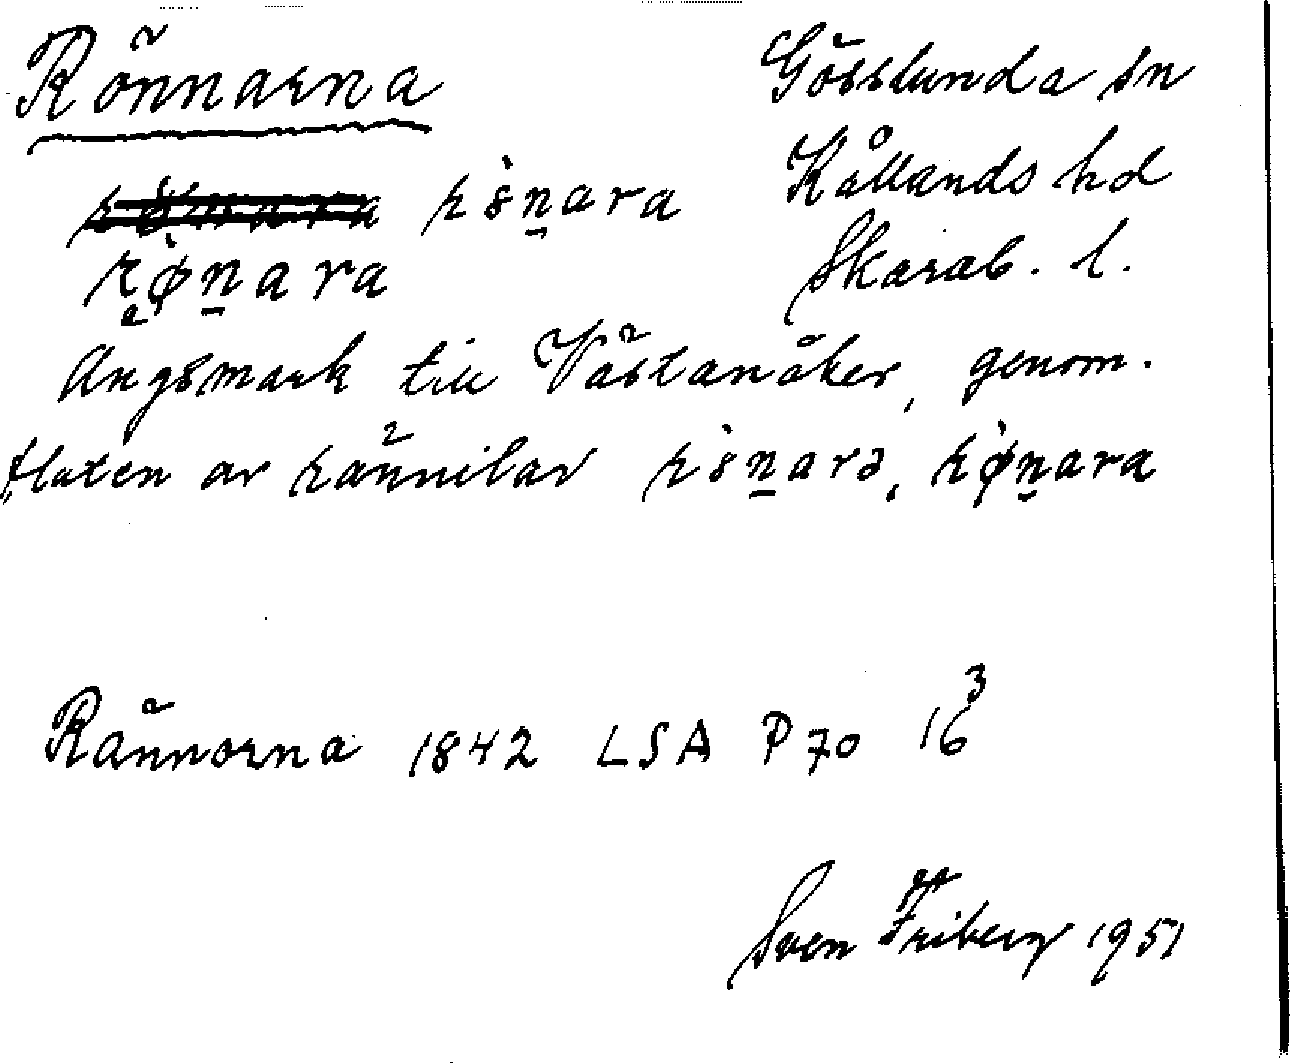 Rönnarna
Gösslunda sn
Kållands hd
Skarab. l.
Ängsmark till Västanåker, genom-
fluten av rännilar
Rännorna 1842 LSA P70 16³
Sven Friberg 1951